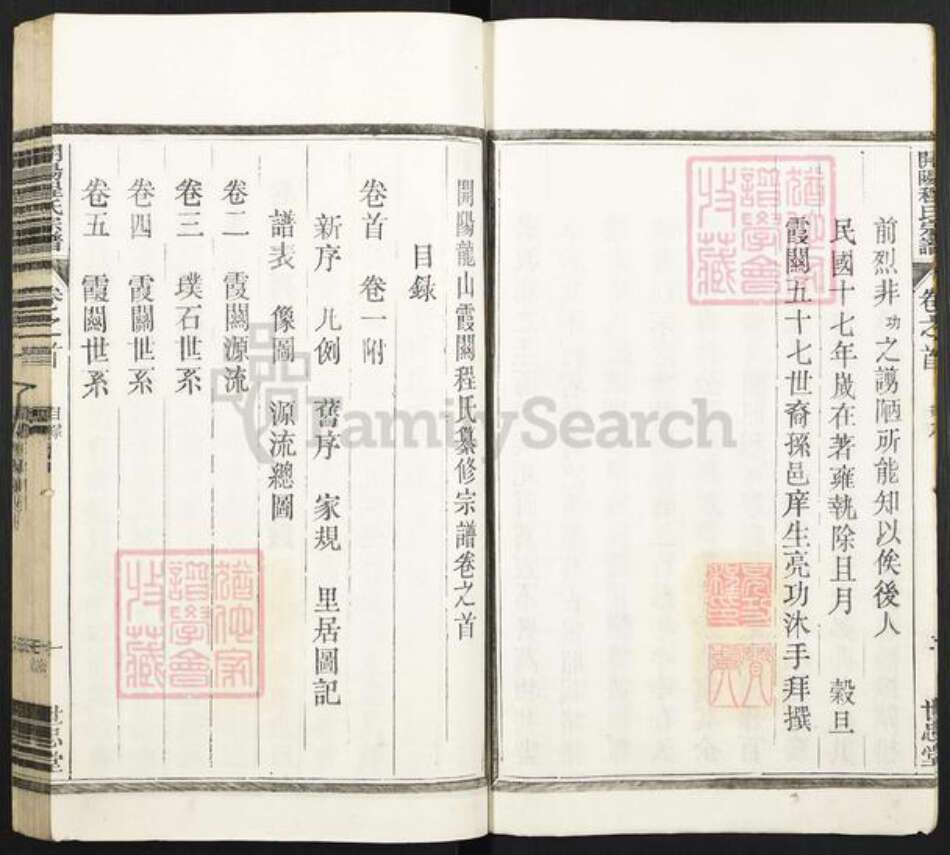 開陽程氏宗譜
卷之首
世忠堂
前烈非功之譾陋所能知以俟後人
民國十七年歲在著雍執除且月 穀旦
霞關五十七世裔孫邑庠生亮功沐手拜撰
開陽龍山霞關程氏纂修宗譜卷之首
目錄
卷首 卷一附
新序 凡例 舊序 家規 里居圖記
譜表 像圖 源流總圖
卷二 霞關源流
卷三 璞石世系
卷四 霞關世系
卷五 霞關世系
開陽程氏宗譜
卷之首
目錄
一
世忠堂
譜學會
收藏
譜學會
收藏
FamilySearch